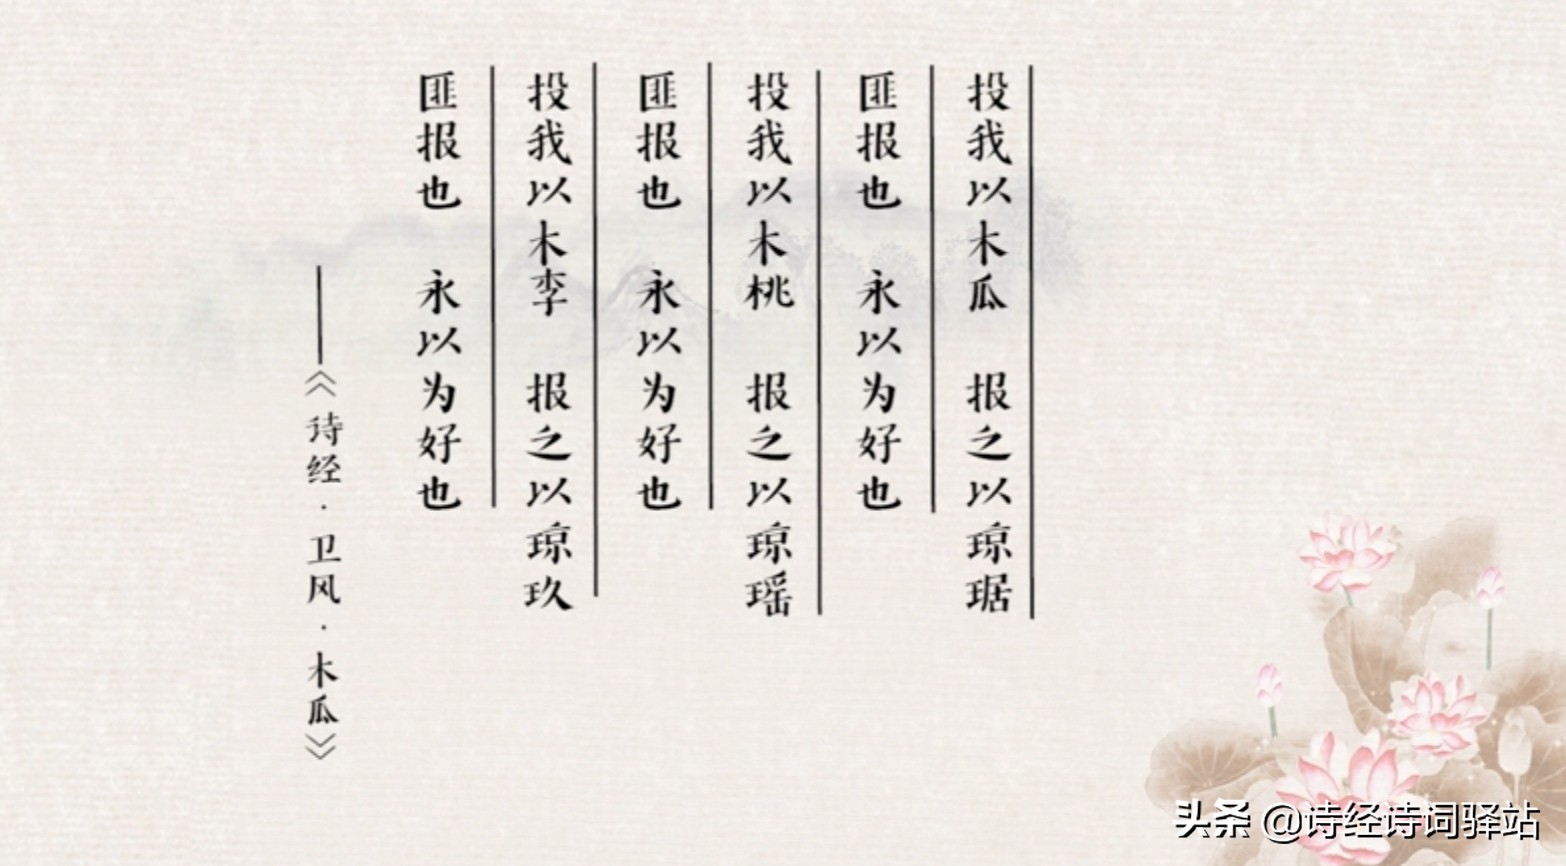 投我以木瓜 报之以琼琚
匪报也 永以为好也
投我以木桃 报之以琼瑶
匪报也 永以为好也
投我以木李 报之以琼玖
匪报也 永以为好也
——《诗经·卫风·木瓜》
头条 @诗经诗词驿站